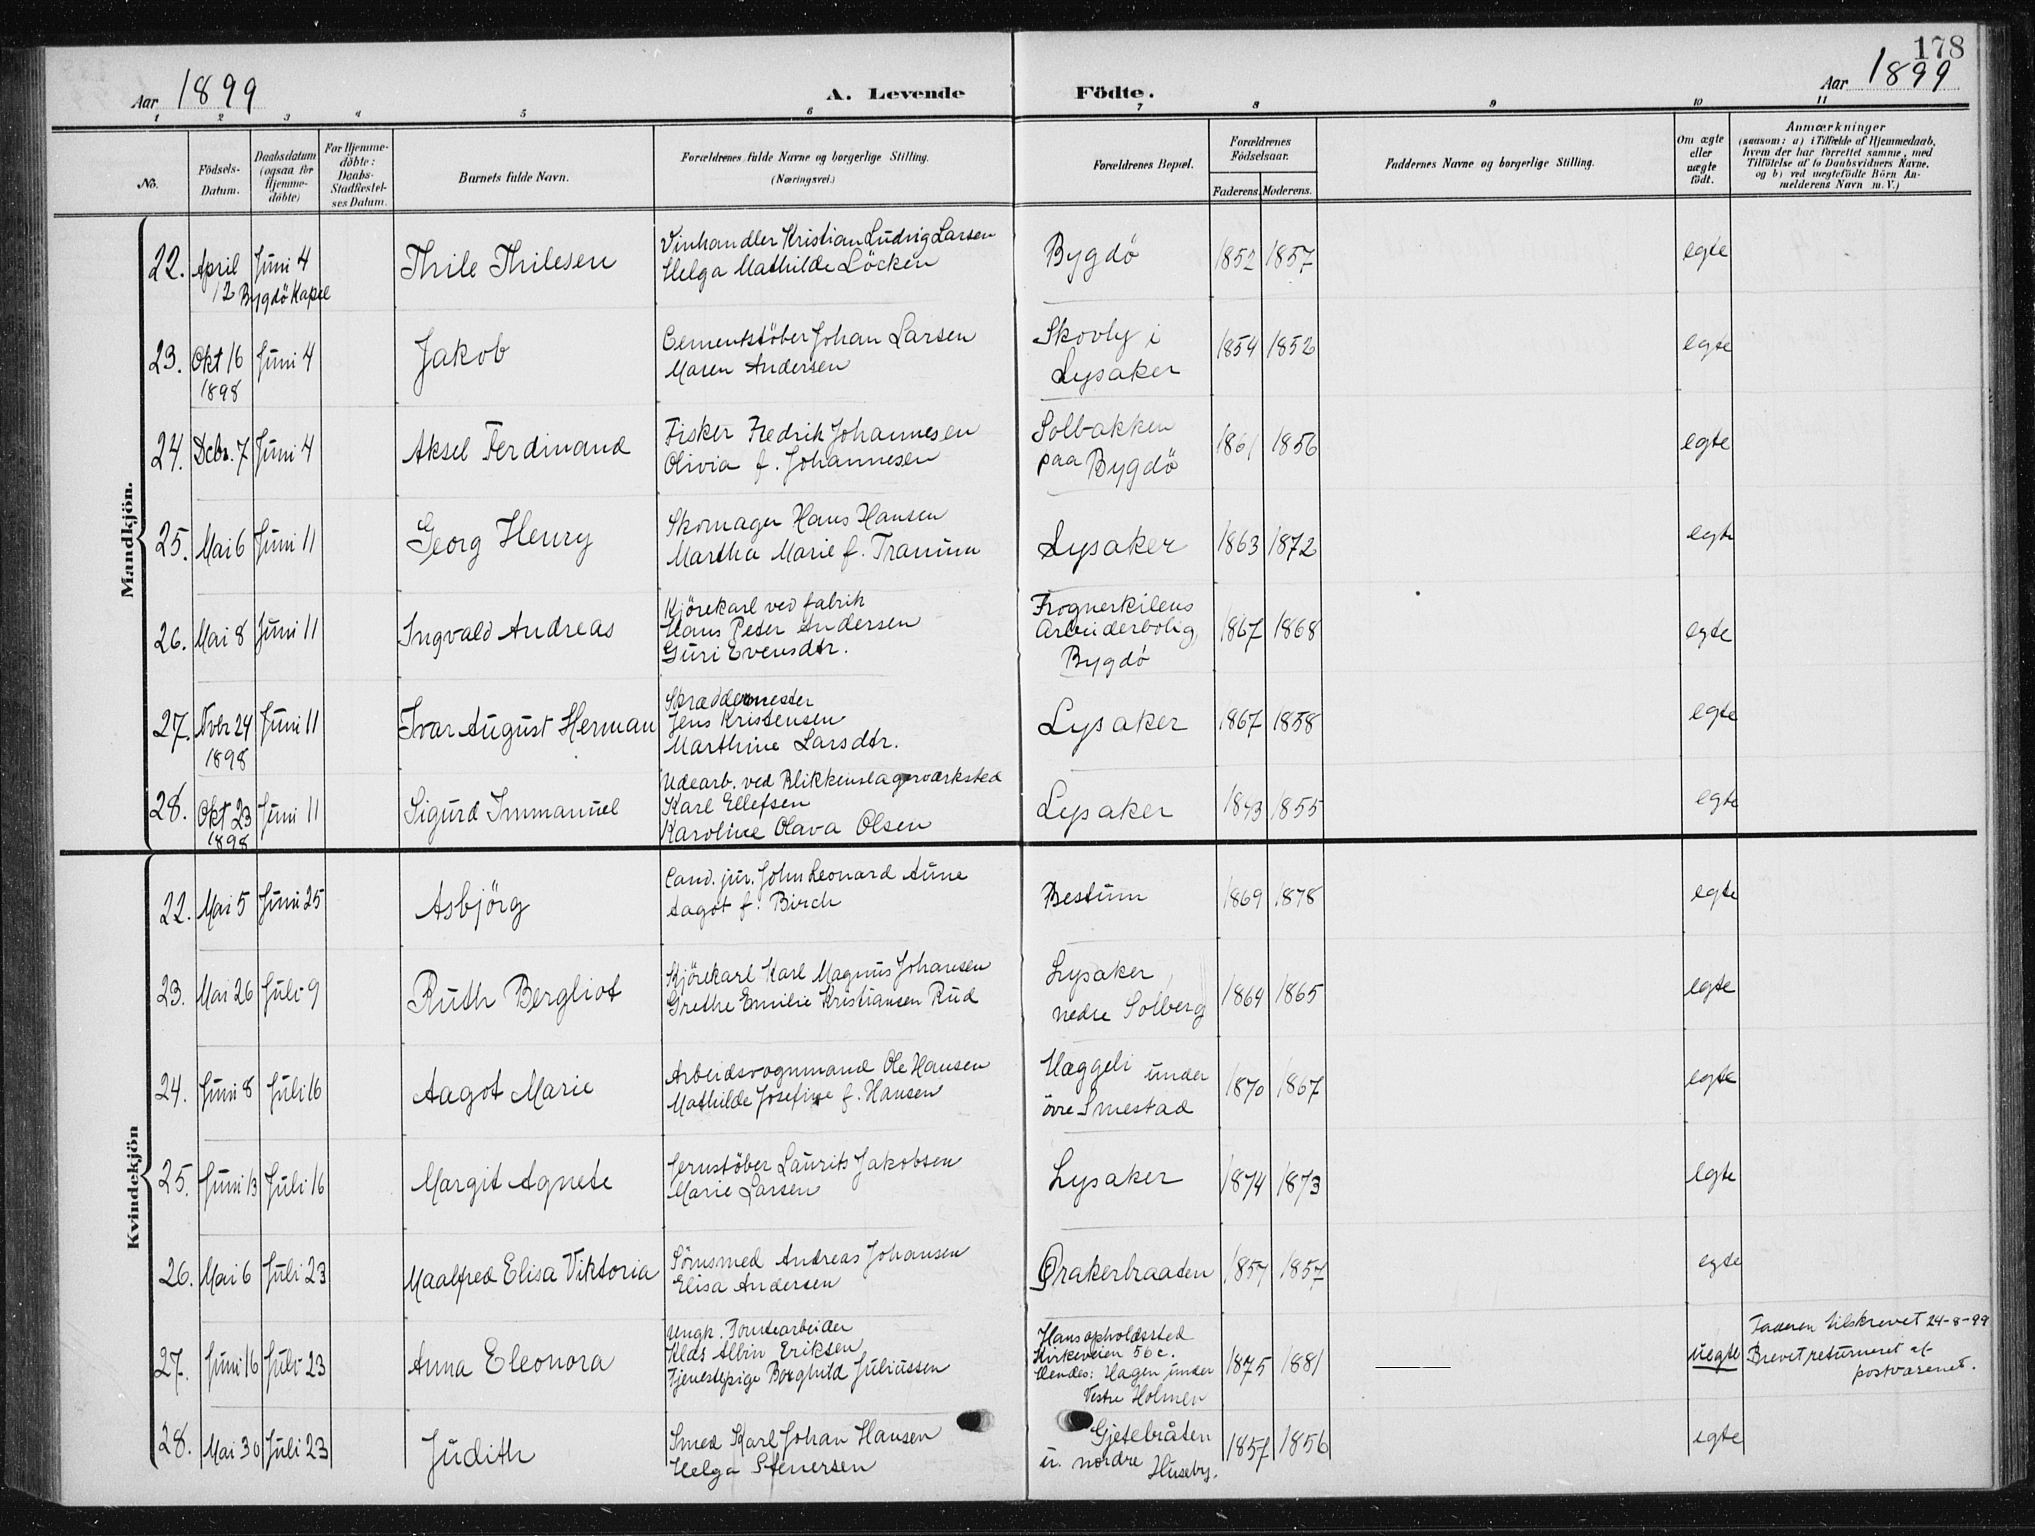 178
Aar 1899
A. Levende Födte.
Aar 1899
1 2 3 4 5 6 7 8 9 10 11
No.
Födsels-Datum.
Daabsdatum (ogsaa for Hjemme-döbte)
For Hjemme-döbte: Daabs-Stadfæstel-ses Datum.
Barnets fulde Navn.
Forældrenes fulde Navne og borgerlige Stilling. (Næringsvei.)
Forældrenes Bopæl.
Forældrenes Födselsaar.
Faderens. Moderens.
Faddernes Navne og borgerlige Stilling.
Om ægte eller uægte födt.
Anmærkninger
(saasom: a) i Tilfælde af Hjemmedaab, hvem der har forrettet samme, med Tilföielse af to Daabsvidners Navne, og b) ved uægtefödte Börn An-melderens Navn m. V.)
Mandkjön.
22. April 12 Juni 4 Bygdö Kapel Thile Thilesen Vinhandler Kristian Ludvig Larsen
Helga Mathilde Löcken Bygdö 1852 1857 egte
23. Okt 16 1898 Juni 4 Jakob Cementstöber Johan Larsen
Maren Andersen Skovly i Lysaker 1854 1852 egte
24. Debr. 7 Juni 4 Aksel Ferdinand Fisker Fredrik Johannesen
Olivia f. Johannesen Solbakken paa Bygdö 1861 1856 egte
25. Mai 6 Juni 11 Georg Henry Skomager Hans Hansen
Martha Marie f. Tranum Lysaker 1863 1872 egte
26. Mai 8 Juni 11 Ingvald Andreas Kjörekarl ved fabrik
Hans Peter Andersen
Guri Evensdtr. Frognerkilens Arbeiderbolig, Bygdö 1867 1868 egte
27. Nvbr 24 1898 Juni 11 Ivar August Herman Skræddermester
Jens Kristensen
Marthine Larsdtr. Lysaker 1867 1858 egte
28. Okt 23 1898 Juni 11 Sigurd Immanuel Udearb. ved Blikkenslagerværksted
Karl Ellefsen
Karoline Olava Olsen Lysaker 1843 1855 egte
Kvindekjön
22. Mai 5 Juni 25 Asbjörg Cand. jur. John Leonard Aune
Aagot f. Birch Bestum 1869 1878 egte
23. Mai 26 Juli 9 Ruth Bergliot Kjörekarl Karl Magnus Johansen
Grethe Emilie Kristiansen Rud Lysaker nedre Solberg 1864 1865 egte
24. Juni 8 Juli 16 Aagot Marie Arbeidsvognmand Ole Hansen
Mathilde Josefine f. Hansen Hæggeli under övre Smestad 1870 1867 egte
25. Juni 13 Juli 16 Margit Agnete Jernstöber Laurits Jakobsen
Marie Larsen Lysaker 1874 1873 egte
26. Mai 6 Juli 23 Maalfred Elisa Viktoria Sömsmed Andreas Johansen
Elisa Andersen Örakerbraaten 1857 1857 egte
27. Juni 16 Juli 23 Anna Eleonora Ungk. Tomtearbeider
Klas Albin Eriksen
Tjenestepige Borghild Juliussen Hans opholdssted
Kirkeveien 56 c.
Hendes: Hagen under
Vestre Holmen 1875 1881 uegte Faderen tilskrevet 24-8-99
Brevet returneret af
postvæsenet.
28. Mai 30 Juli 23 Judith Smed Karl Johan Hansen
Helga Stenersen Gjetebråten
u. nordre Huseby. 1857 1856 egte